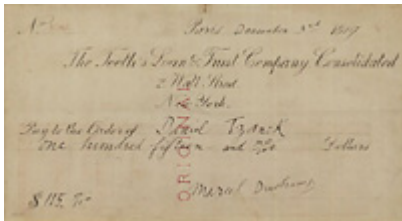 No
Paris December 3rd 1919
The Teeth's Loan & Trust Company Consolidated
2 Wall Street
New York.
Pay to the Order of Daniel Tzanck
one hundred fifteen and no/00 Dollars
$ 115. 00
Marcel Duchamp
ORIGINAL